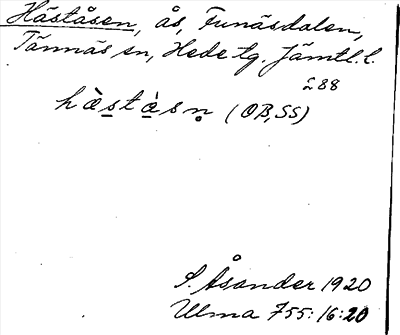 Håståsen, ås, Funäsdalen,
Tännäs sn, Hede tg. Jämtl. l.
£88
hàs̲tàs̲n̥ (OB, SS)
S. Åsander 1920
Ulma 755:16:20